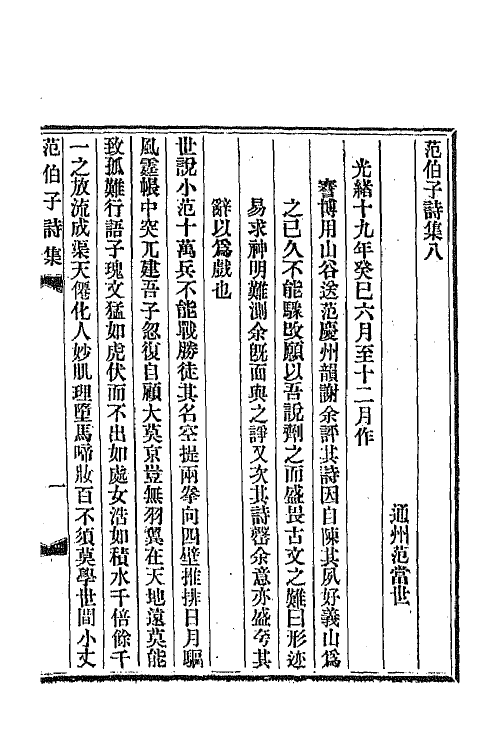 范伯子詩集八
通州范當世
光緒十九年癸巳六月至十二月作
謇博用山谷送范慶州韻謝余評其詩因自陳其夙好義山爲
之已久不能驟改願以吾說劑之而盛畏古文之難曰形迹
易求神明難測余旣面與之諍又次其詩罄余意亦盛夸其
辭以爲戲也
世說小范十萬兵不能戰勝徒其名空提兩拳向四壁推排日月驅
風霆帳中突兀建吾子忽復自顧大莫京豈無羽翼在天地遠莫能
致孤難行語子瑰文猛如虎伏而不出如處女浩如積水千倍餘千
一之放流成渠天僊化人妙肌理墮馬啼妝百不須莫學世間小丈
范伯子詩集
一